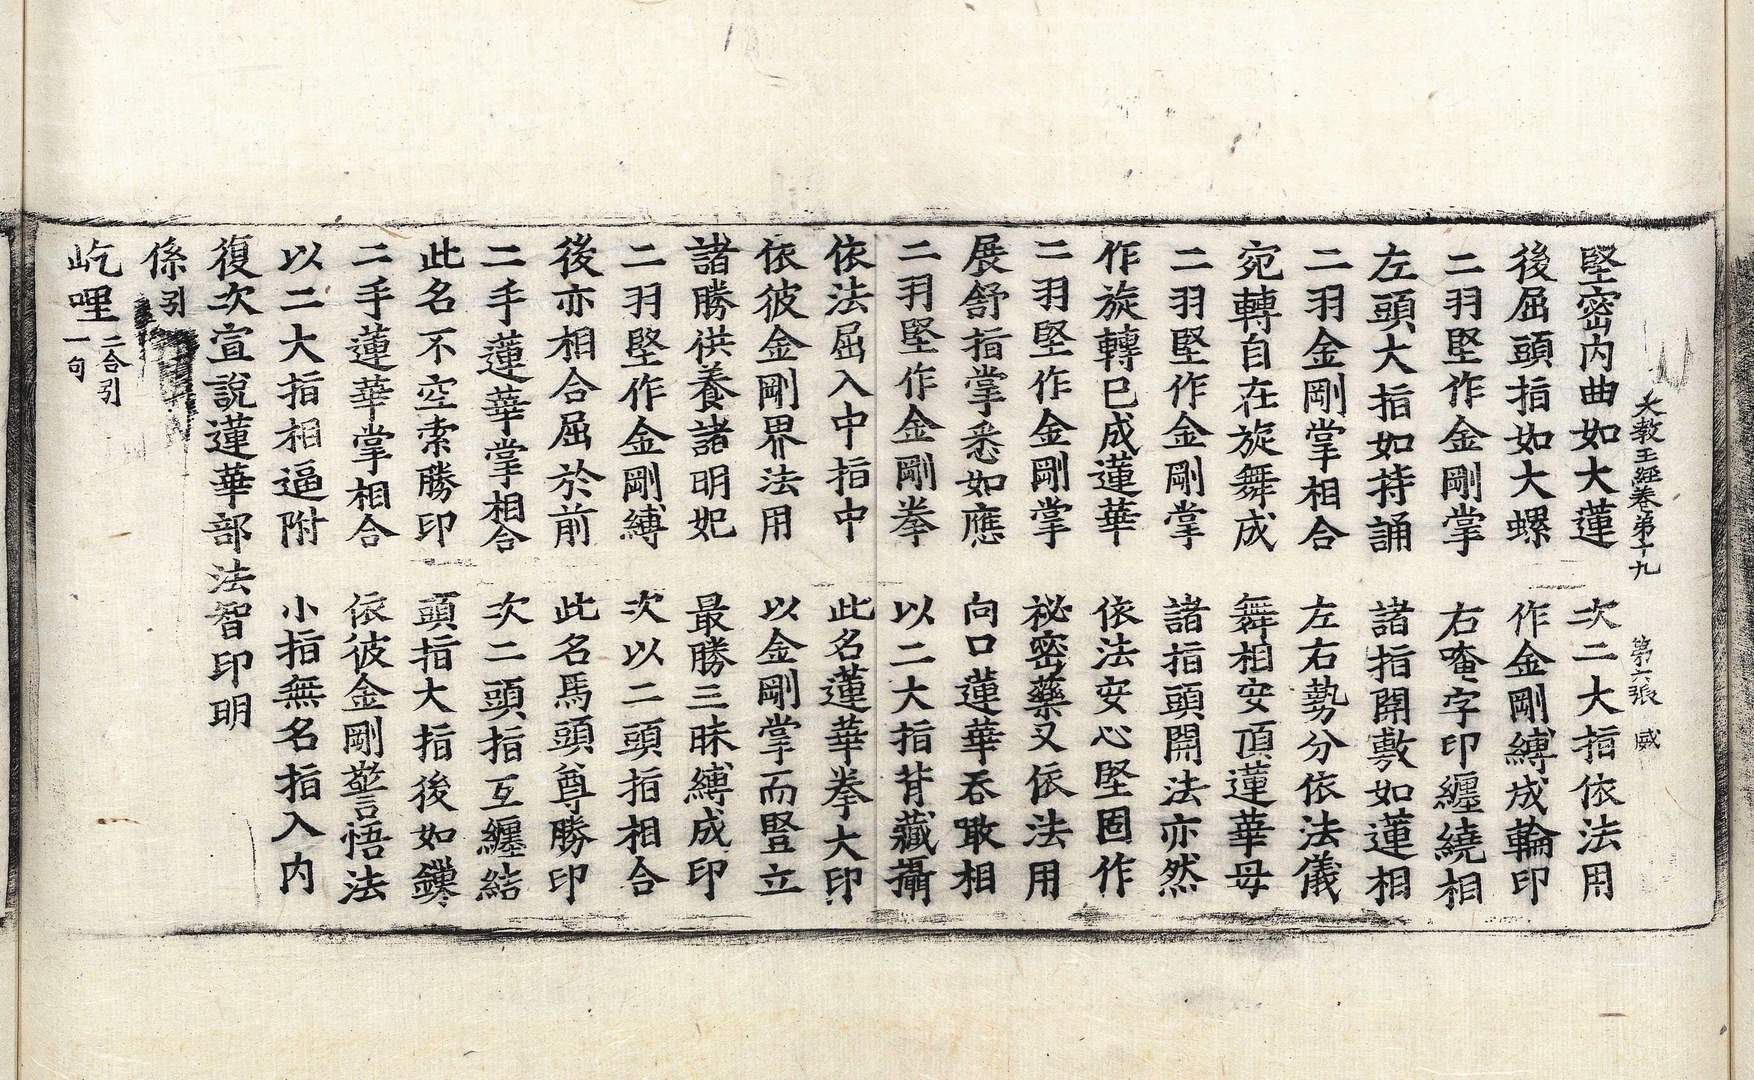 大教王經卷第十九 第六張 威
堅密內曲如大蓮 次二大指依法用
後屈頭指如大螺 作金剛縛成輪印
二羽堅作金剛掌 右唵字印纏繞相
左頭大指如持誦 諸指開敷如蓮相
二羽金剛掌相合 左右勢分依法儀
宛轉自在旋舞成 舞相安頂蓮華毋
二羽堅作金剛掌 諸指頭開法亦然
作旋轉已成蓮華 依法安心堅固作
二羽堅作金剛掌 祕密藥叉依法用
展舒指掌悉如應 向口蓮華吞噉相
二羽堅作金剛拳 以二大指背藏攝
依法屈入中指中 此名蓮華拳大印
依彼金剛界法用 以金剛掌而豎立
諸勝供養諸明妃 最勝三昧縛成印
二羽堅作金剛縛 次以二頭指相合
後亦相合屈於前 此名馬頭尊勝印
二手蓮華掌相合 次二頭指互纏結
此名不空索勝印 頭指大指後如鑻
二手蓮華掌相合 依彼金剛警悟法
以二大指相逼附 小指無名指入內
復次宣說蓮華部法智印明
係引
屹哩二合引一句